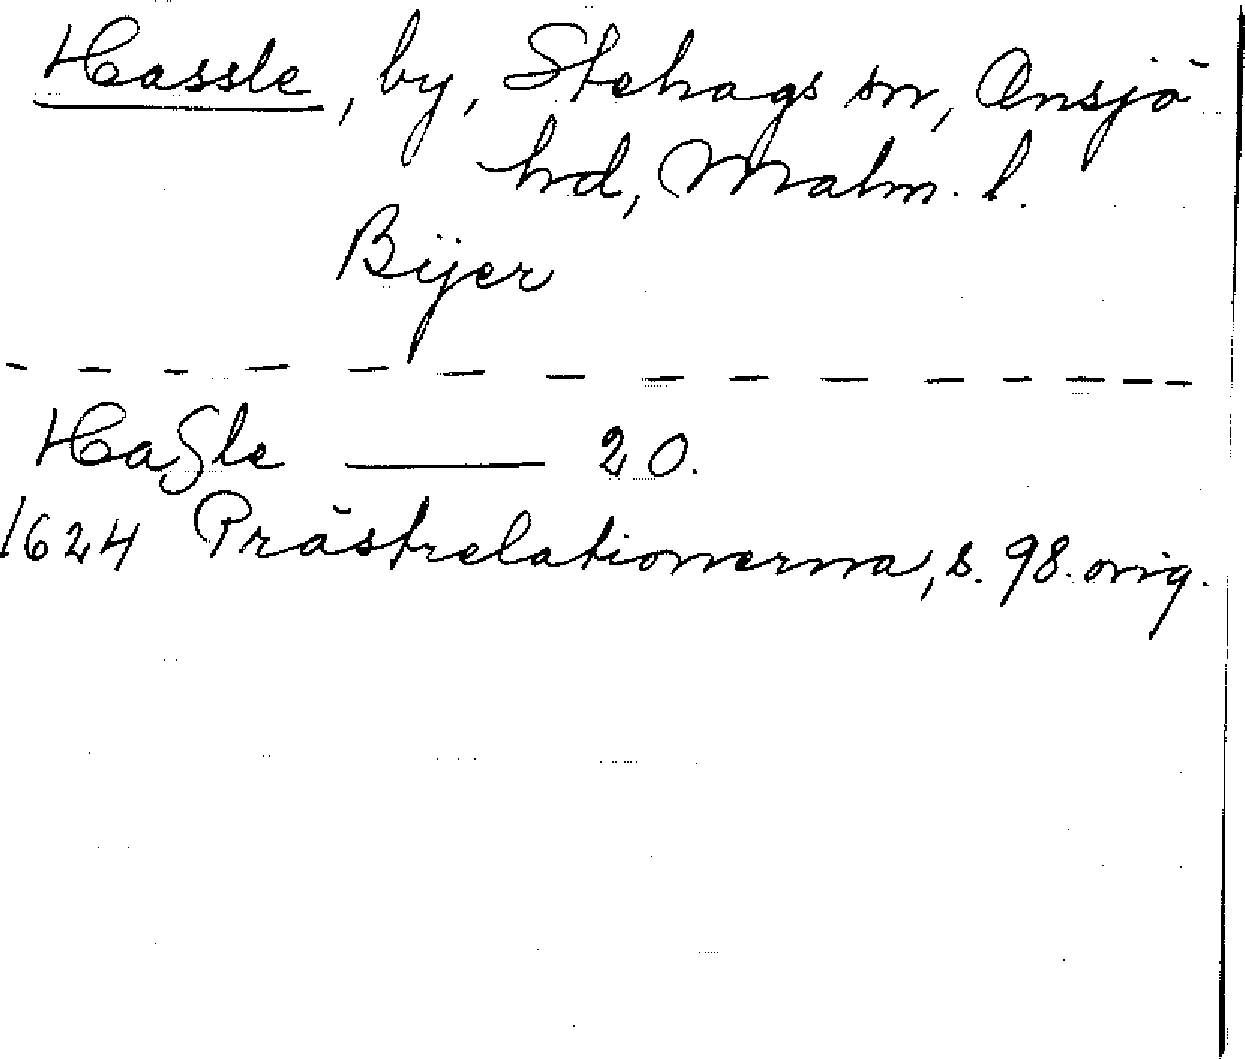 Hassle, by, Stehags sn, Onsjö
hrd, Malm. l.
Bÿer
Haßle —— 20.
1624 Prästrelationerna, s. 98. orig.